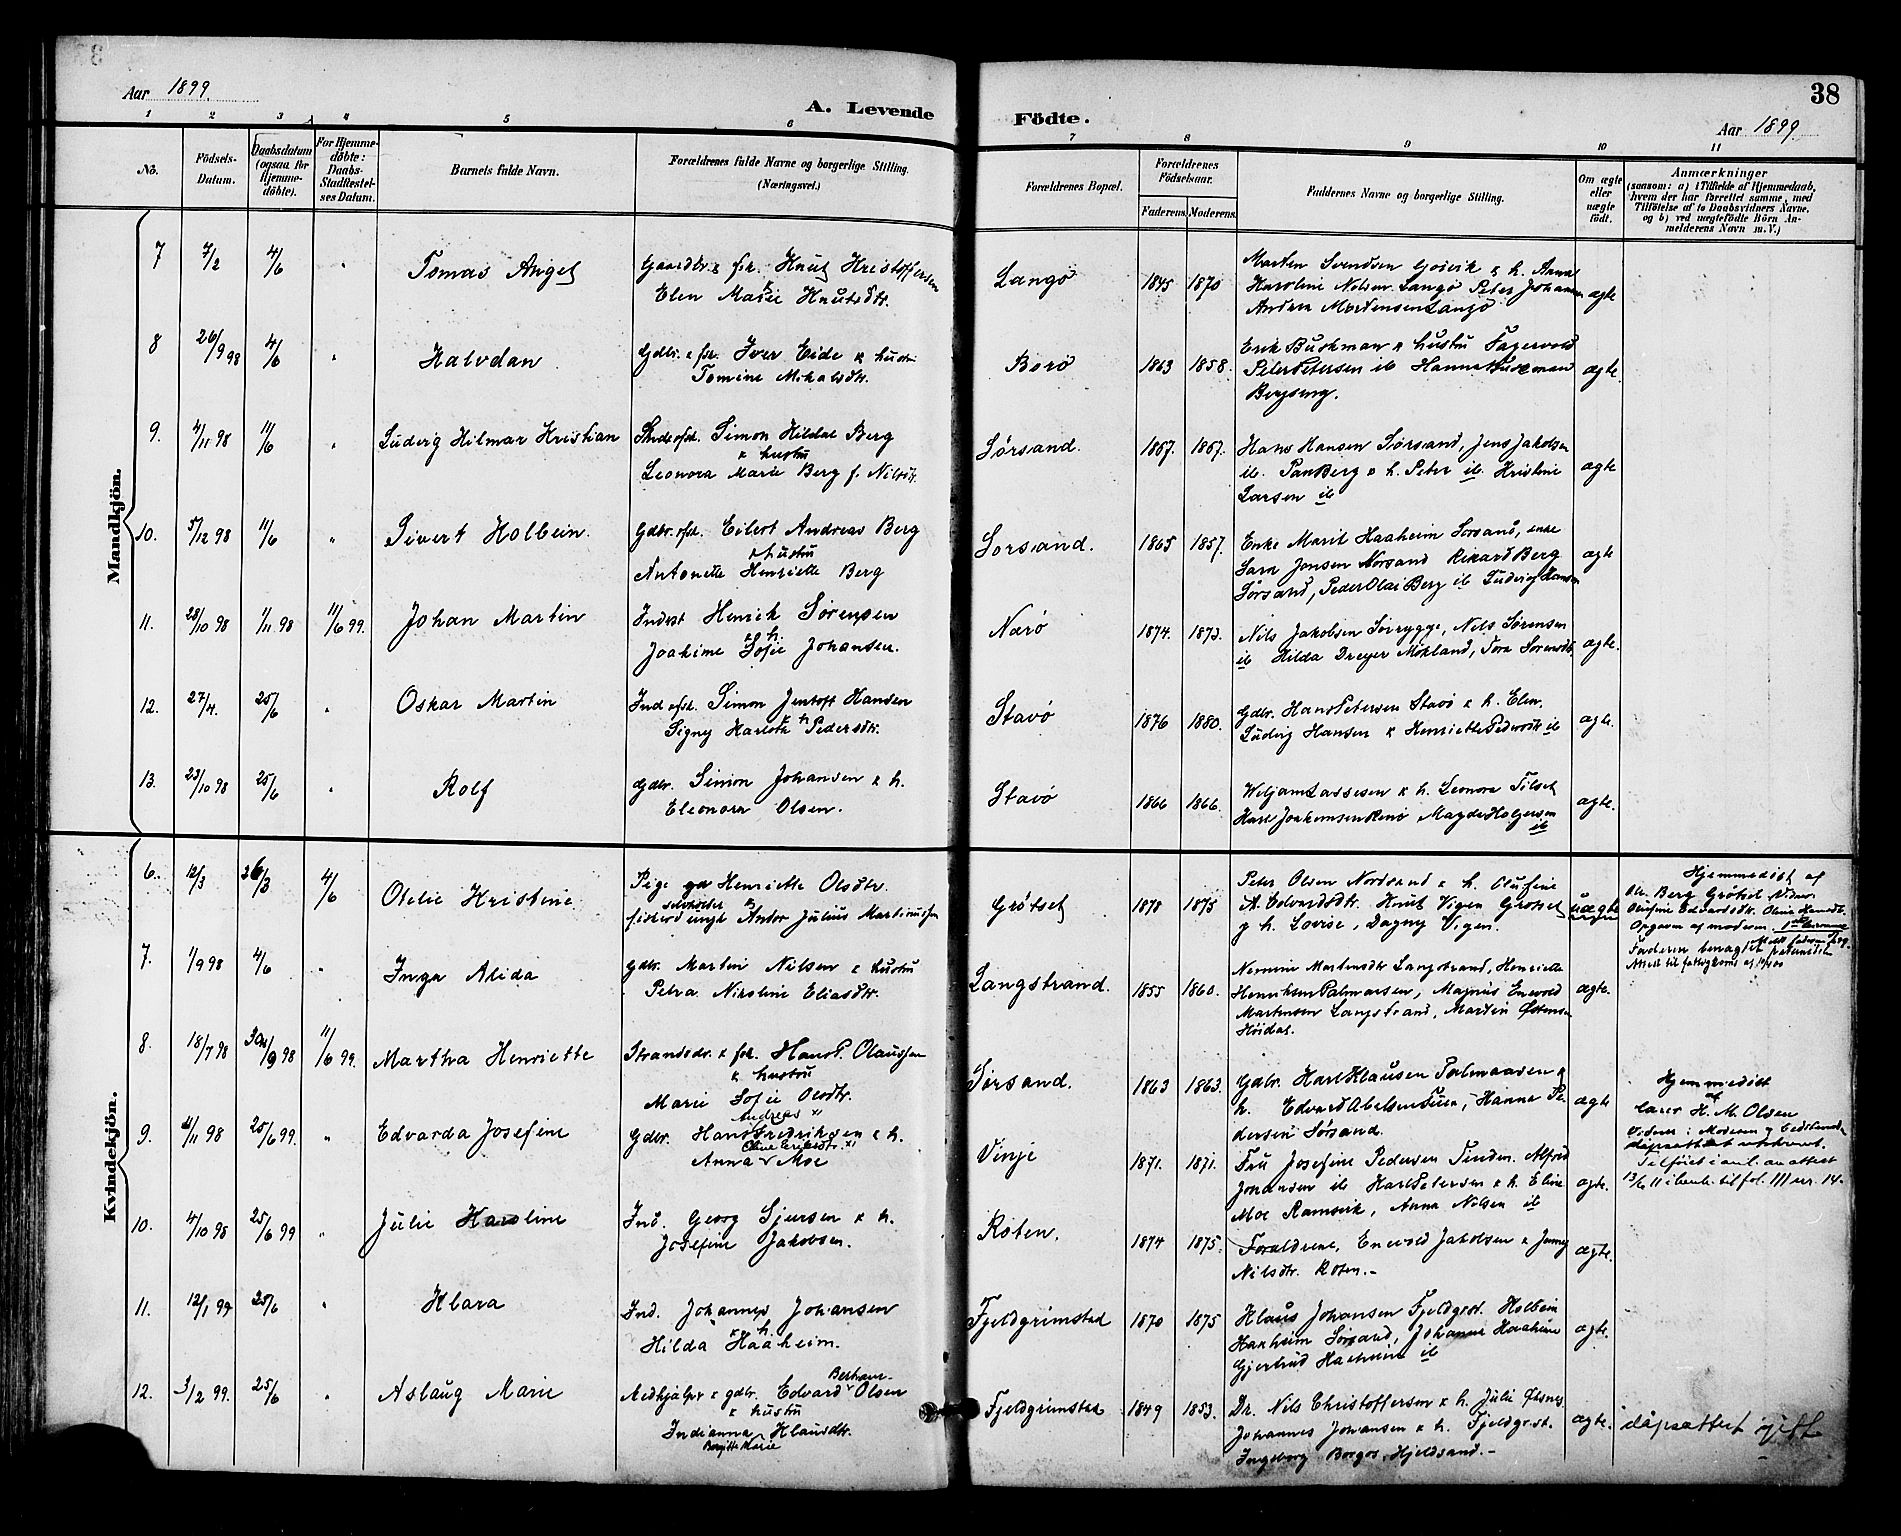 38
Aar 1899.
A. Levende Födte.
Aar 1899
1 2 3 4 5 6 7 8 9 10 11
No.
Födsels-Datum.
Daabsdatum (ogsaa for Hjemme-döbte).
For Hjemme-döbte: Daabs-Stadfæstel-ses Datum.
Barnets fulde Navn.
Forældrenes fulde Navne og borgerlige Stilling. (Næringsvei.)
Forældrenes Bopæl.
Forældrenes Födselsaar.
Faderens. Moderens.
Faddernes Navne og borgerlige Stilling.
Om ægte eller uægte födt.
Anmærkninger
(saasom: a) i Tilfælde af Hjemmedaab,
hvem der har forrettet samme, med
Tilföielse af to Daabsvidners Navne,
og b) ved uegtefödte Börn An-
melderens Navn m. V.)
Mandkjön.
7 7/2 4/6 " Tomas Angel
Gaardbr. & fsk. Knut Kristoffersen
&
Elen Marie Knutsdtr.
Langø 1845 1870
Morten Svendsen & h. Anna
Karoline Nelsen Langø Peter Johansen
Andrea Mortensen Langø
ægte
8 26/9 98 4/6 " Halvdan
Gdbr. & fsk. Iver Eide & hustru
Tomine Mikalsdtr.
Borø 1863 1858.
Erik Buskman & hustru Fagervold
Peter Petersen ib Hanna Buskman
Bergseng.
ægte.
9. 4/11 98 11/6 " Ludvig Hilmar Kristian
Simon Hildal Berg
& hustru
Leonora Marie Berg f. Nilsdtr.
Sørsand. 1867. 1867.
Hans Hansen Sørsand, Jens Jakobsen
ib. Berg & h. Peter ib. Kristine
Larsen ib
ægte
10. 5/12 98 11/6 " Sivert Holbein.
Gdbr. & fsk. Eilert Andreas Berg
& hustru
Antonette Henriette Berg
Sørsand. 1865 1857.
Enke Marit Haaheim Sørsand, enke
Sara Jonsen Nørsand Rikard Berg
Sørsand, Peder Olai Berg ib Ludvig Hansen
ægte
11. 28/10 98 1/11 98 11/6 99. Johan Martin
Inderst Henrik Sørensen
& h.
Joakime Sofie Johansen.
Nærø 1874. 1873.
Nils Jakobsen Sørrygge, Nils Sørensen
ib Hilda Dreyer Mokland, Tora Sørensdtr.
ægte.
12. 27/4. 25/6 " Oskar Martin
Ind & fsk. Simon Jentoft Hansen
& h
Signy Karlotte Pedersdtr.
Stavø 1876 1880.
Gdbr. Hans Petersen Stavø & h. Elen.
Ludvig Hansen & Henriette Pedersdtr ib
ægte.
13. 23/10 98 25/6 " Rolf
Gdbr. Simon Johansen & h.
Eleonora Olsen.
Stavø 1866 1866.
Weljam Lassesen & h. Leonora Tilset
Karl Joakimsen Renø, Magda Holgersen
ib
ægte.
Kvindekjön.
6. 12/3 26/3 4/6 Otelie Kristine
Pige Henriette Olsdtr.
selvholder &
fisker & ungk Andor Julius Martinussen
Grøtset 1878 1875
Peter Olsen Nordsand & h. Olufine
A. Edvardsdtr. Knut Vigen Grøtset
g h. Lovise, Dagny Vigen.
uægte
Hjemmedøbt af
Berg Grøtset Vidner
Olufine Edvardsdtr. Olina Hansdtr.
Opgaven af moderen
7. 1/9 98 4/6 " Inga Alida
Gdbr. Martin Nilsen & hustru
Petra Nikoline Eliasdtr.
Langstrand. 1855 1860.
Nennine Martinsdtr Langstrand, Henriette
Henriksen Palmarsen, Magnus Enevold
Martinsen Langstrand, Martin Østensen
Høidal.
ægte.
8. 18/7 98 30/9 98 11/6 99. Martha Henriette
Strandsdr. & fsk. Hans P. Olaussen
& hustru
Marie Sofie Olsdtr.
Sørsand. 1863 1863.
Gdbr. Karl Klausen &
h. Edvard Abelsen Hanna Pe
dersen Sørsand.
ægte
Hjemmedøbt
af
lærer H. M. Olsen
Vidner: Moderen og
9. 2/11 98 25/6 99. " Edvarda Josefine
Andreas
Gdbr. Hans Fredriksen & h.
Oline Eriksdtr.
Anna Moe
Vinje 1871. 1871.
Fru Josefine Pedersen Tinden. Alfred
Johansen ib Karl Petersen & h. Eline
Moe Ramsvik, Anna Nilsen ib
ægte.
dåpsattest utskrevet.
Tilføiet i anl. av attest
13/6 11 ibenh. til fol. 111 nr. 14.
10. 4/10 98 25/6 99 " Julie Karoline
Ind. Georg Sjursen & h.
Josefine Jakobsen.
Roten. 1874 1875.
Forældrene, Enevold Jakobsen & Jenny
Nilsdtr. Roten.-
ægte.
11. 12/1 99 25/6 " Klara
Ind. Johannes Johansen
& h.
Hilda Haaheim.
Fjeldgrimstad 1870 1875
Klaus Johansen Fjeldgrst. Holbein
Haaheim Sørsand, Johanne Haaheim
Gjertrud Haaheim ib
ægte.
12. 3/2 99. 25/6 " Aslaug Marie
Berthavs-
& gdbr. Edvard Olsen
& hustru
Indianna Klausdtr.
Bergitte Marie
Fjeldgrimstad 1849 1853.
Dr. Nils Christoffersen & h. Julie Øksnes
Johannes Johansen & h. Fjeldgrst.
Ingeborg Borgos, Hjeldsand.-
ægte.
dåpsattest gitt